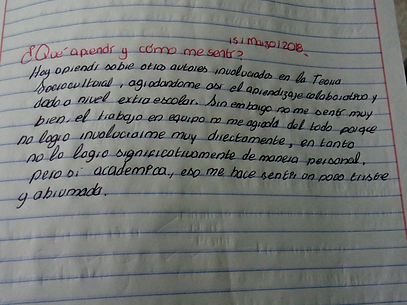 15 | Marzo | 2018.
¿Qué aprendí y cómo me sentí?
Hoy aprendí sobre otros autores involucrados en la Teoría
Sociocultural, agradandome así el aprendizaje colaborativo y
dado a nivel extraescolar. Sin embargo no me sentí muy
bien, el trabajo en equipo no me agrada del todo porque
no logro involucrarme muy directamente, en tanto
no lo logro significativamente de manera personal,
pero sí académica, eso me hace sentir un poco triste
y abrumada.